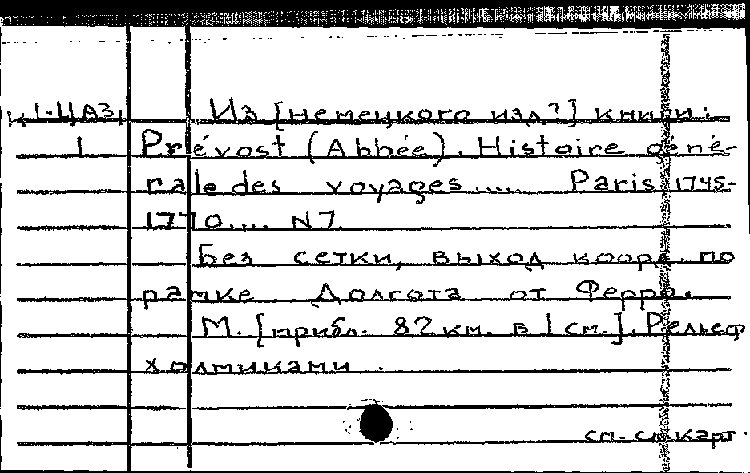 К 1-ЦАЗ, Из [немецкого изд?] книги:
1 Prévost (Abbée). Histoire géné-
rale des voyages.... Paris, 1745-
1770.... N7.
Без сетки, выход коорд. по
рамке Долгота от Ферро.
М. [прибл. 82 км. в 1 см.]. Рельеф
холмиками.
см. сл. карт.